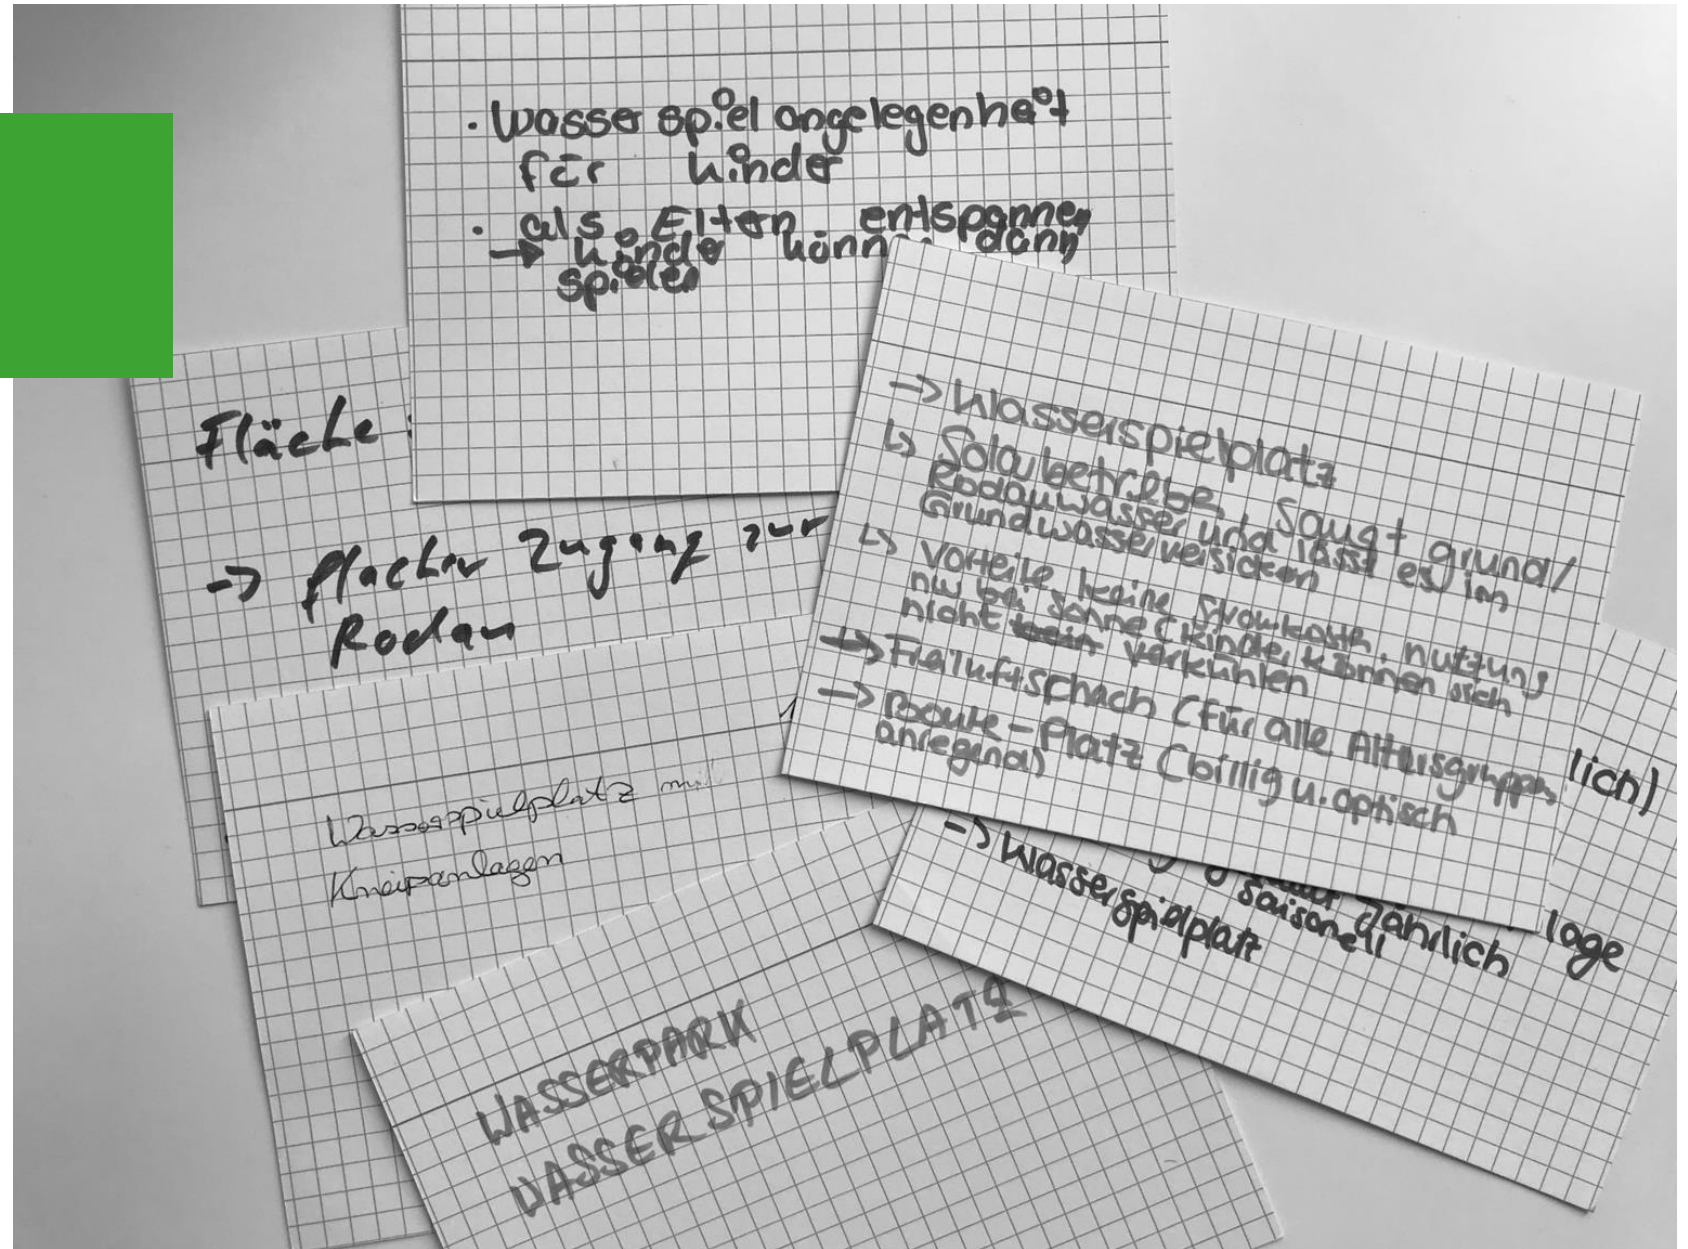 · Wasserspielangelegenheit
für Kinder
· als Eltern entspannen
→ Kinder können dann
spielen
Fläche :
-> flacher Zugang zur
Rodau
-> Wasserspielplatz
↳ Solarbetriebe, Saugt grund/
Rodauwasser und lässt es im
Grundwasser versickern
↳ Vorteile keine Stromkosten, nutzung
nur bei Sonne (Kinder können sich
nicht verkühlen
-> Freiluftschach (für alle Altersgruppen
-> Boule - Platz (billig u. optisch
anregend)
lich)
Wasserspielplatz mit
Kneipanlagen
-> Wasserspielplatz
saisonell
Jährlich
lage
WASSERPARK
WASSERSPIELPLATZ